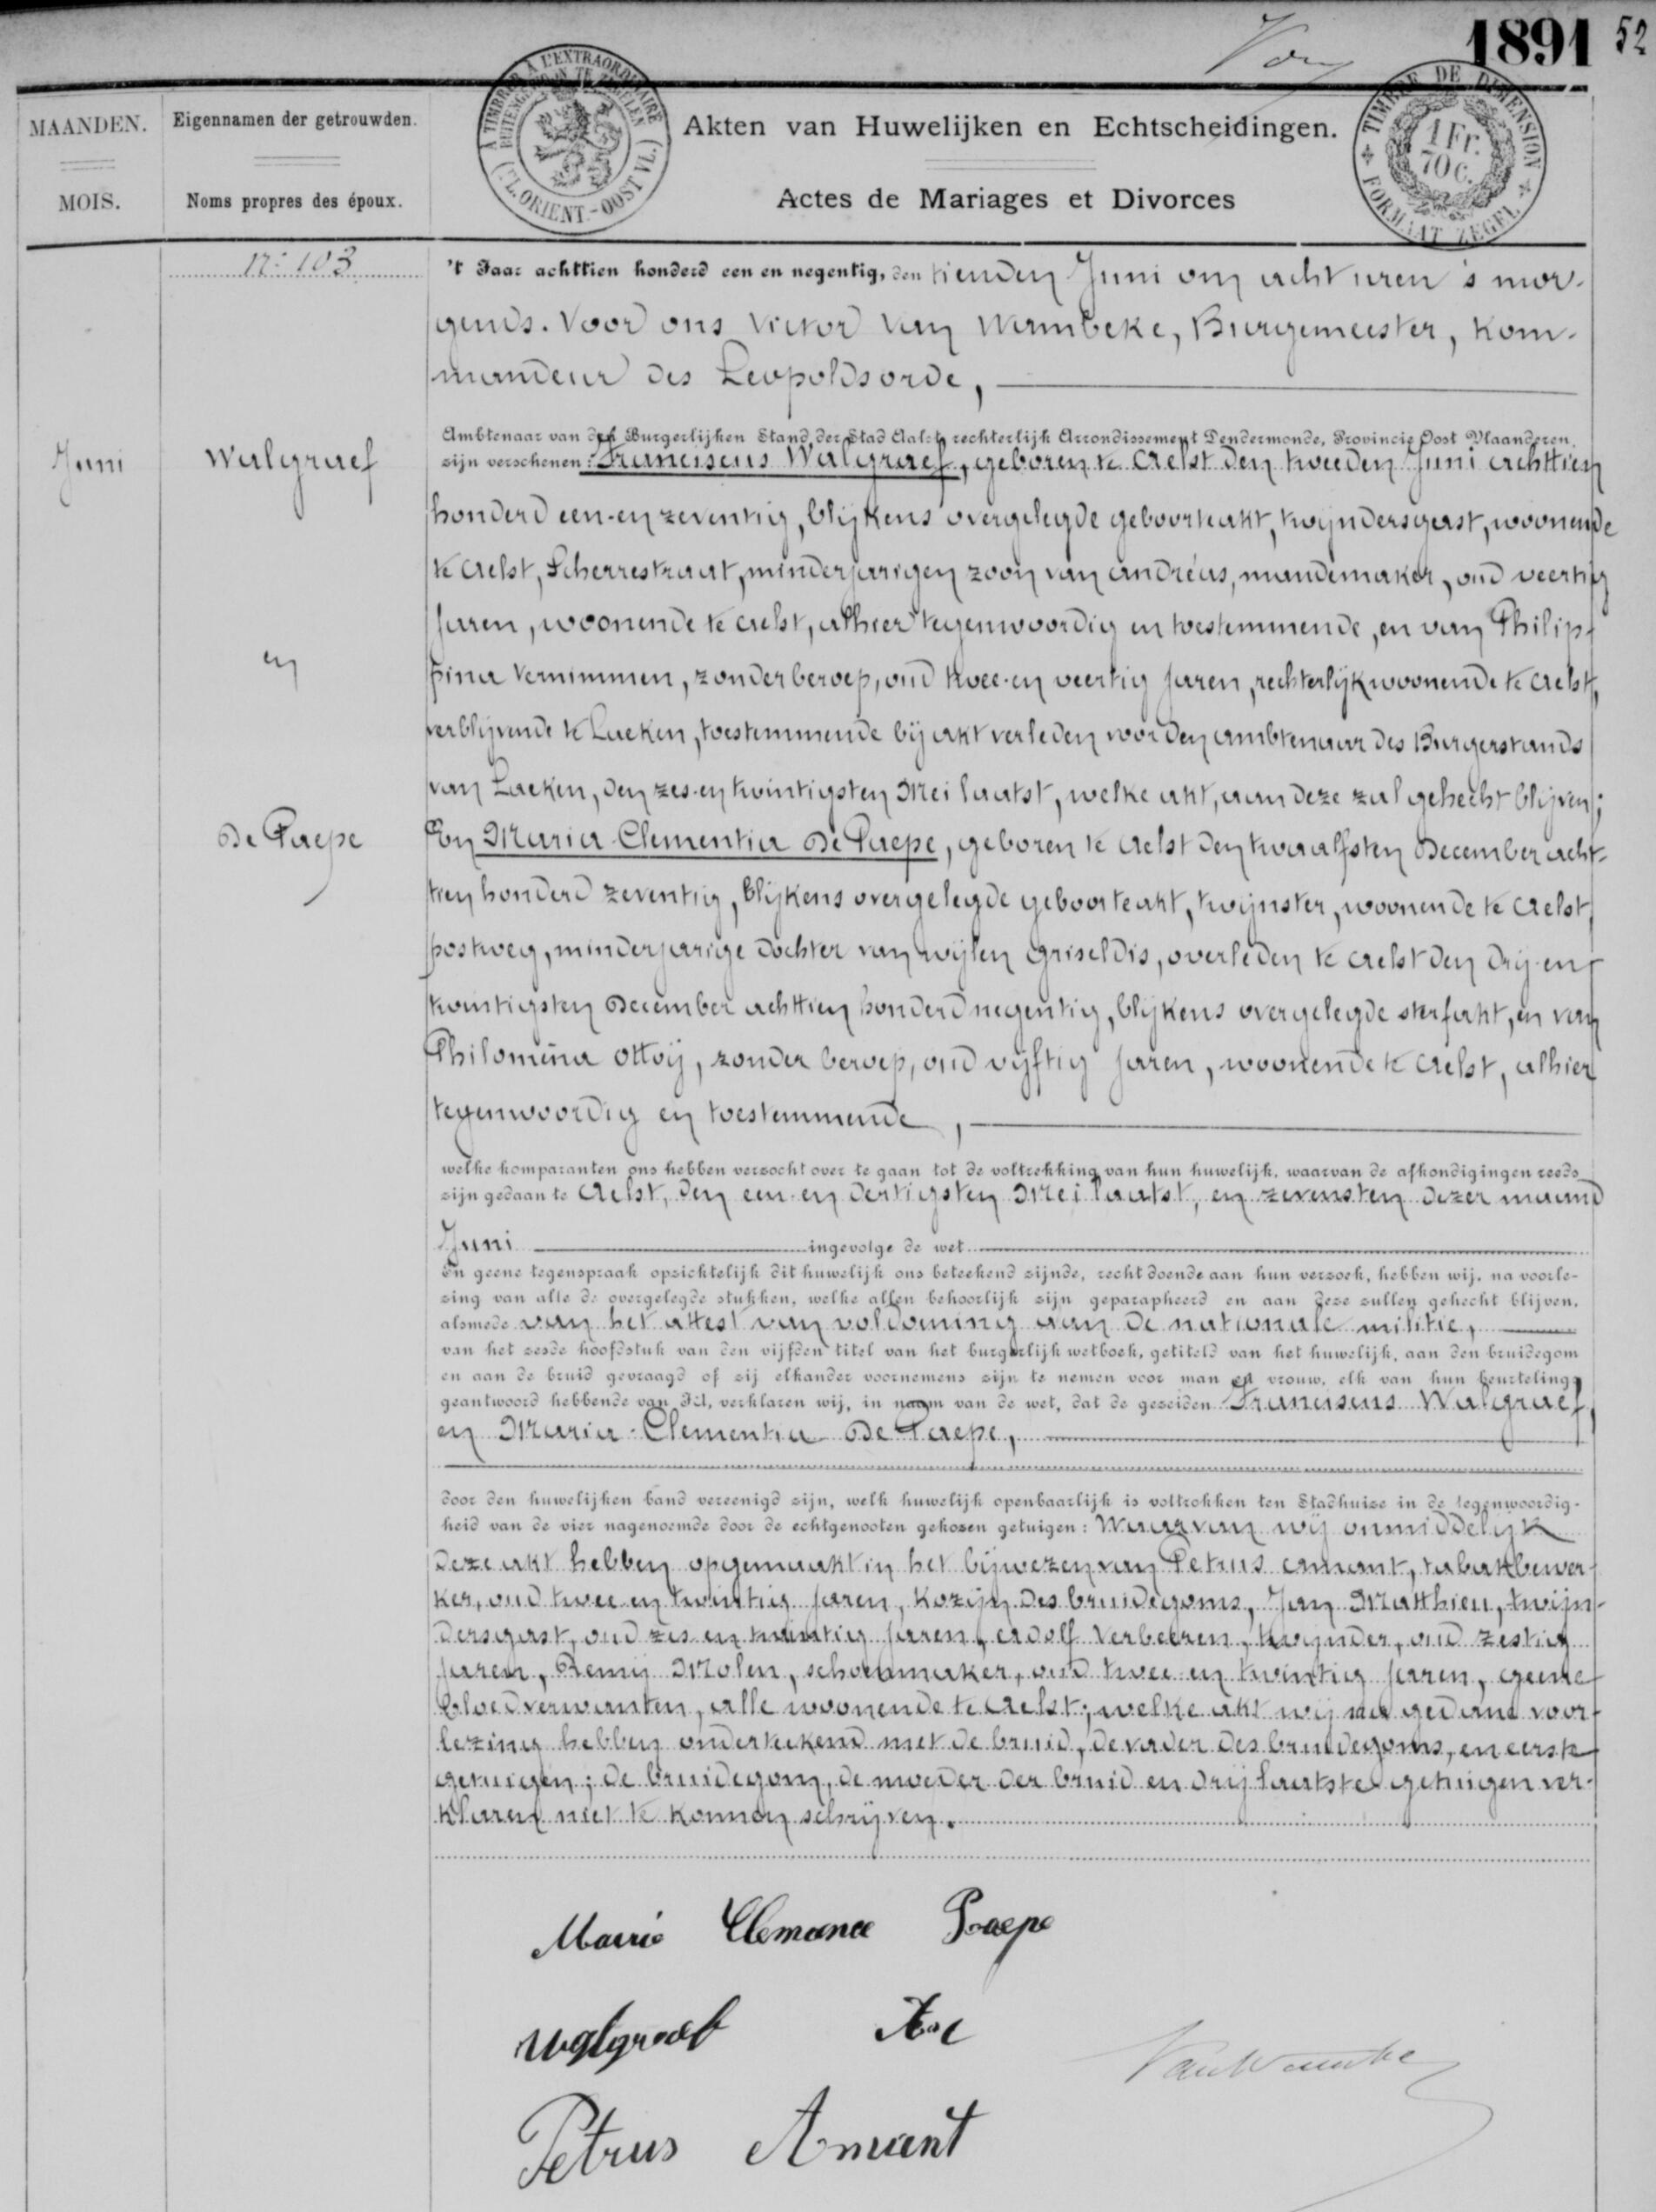 1891 52
A TIMBRER A L'EXTRAORDINAIRE
BUITENGEWOON TE ZEGELEN
(FL. ORIENT.-OOST VL.)
TIMBRE DE DIMENSION
1 Fr.
70 c.
FORMAAT ZEGEL
MAANDEN.
MOIS.
Eigennamen der getrouwden.
Noms propres des époux.
Akten van Huwelijken en Echtscheidingen.
Actes de Mariages et Divorces
N: 103
Juni
Walgraef
en
De Paepe
't Jaar achttien honderd een en negentig, den tienden Juni om acht uren 's mor-
gends. Voor ons Victor Van Wambeke, Burgemeester, Kom-
mandeur des Leopoldsorde,
Ambtenaar van den Burgerlijken Stand der Stad Aalst, rechterlijk Arrondissement Dendermonde, Provincie Oost Vlaanderen,
zijn verschenen: Franciscus Walgraef, geboren te Aelst den tweeden Juni achttien
honderd een-en zeventig, blijkens overgelegde geboorteakt, twijndersgast, woonende
te Aelst, Scherrestraat, minderjarigen zoon van Andréas, mandemaker, oud veertig
jaren, woonende te Aelst, alhier tegenwoordig en toestemmende, en van Philip-
pina Vernimmen, zonder beroep, oud twee-en veertig jaren, rechterlijk woonende te Aelst,
verblijvende te Laeken, toestemmende bij akt verleden voor den ambtenaar des Burgerstands
van Laeken, den zes-en twintigsten Mei laatst, welke akt, aan deze zal gehecht blijven;
En Maria-Clementia De Paepe, geboren te Aelst den twaalfsten December acht-
tien honderd zeventig, blijkens overgelegde geboorteakt, twijnster, woonende te Aelst,
postweg, minderjarige dochter van wijlen Griseldis, overleden te Aelst den drij-en
twintigsten December achttien honderd negentig, blijkens overgelegde sterfakt, en van
Philomêna Ottoÿ, zonder beroep, oud vijftig jaren, woonende te Aelst, alhier
tegenwoordig en toestemmende,
welke komparanten ons hebben verzocht over te gaan tot de voltrekking van hun huwelijk, waarvan de afkondigingen reeds
zijn gedaan te Aelst, den een-en dertigsten Mei laatst, en zevensten dezer maand
Juni ingevolge de wet
En geene tegenspraak opzichtelijk dit huwelijk ons beteekend zijnde, recht doende aan hun verzoek, hebben wij, na voorle-
zing van alle de overgelegde stukken, welke allen behoorlijk zijn geparapheerd en aan deze zullen gehecht blijven,
alsmede van het attest van voldoening aan de nationale militie,
van het zesde hoofdstuk van den vijfden titel van het burgerlijk wetboek, getiteld van het huwelijk, aan den bruidegom
en aan de bruid gevraagd of zij elkander voornemens zijn te nemen voor man en vrouw, elk van hun beurtelings
geantwoord hebbende van Ja, verklaren wij, in naam van de wet, dat de gezeiden Franciscus Walgraef,
en Maria-Clementia De Paepe,
door den huwelijken band vereenigd zijn, welk huwelijk openbaarlijk is voltrokken ten Stadhuize in de tegenwoordig-
heid van de vier nagenoemde door de echtgenooten gekozen getuigen: Waarvan wij onmiddelijk
deze akt hebben opgemaakt in het bijwezen van Petrus Amant, tabakbewer-
ker, oud twee-en twintig jaren, Kozijn des bruidegoms, Jan Matthieu, twijn-
dersgast, oud zes-en twintig jaren, Adolf Verbeeren, twijnder, oud zestig
jaren, Remij Molen, schoenmaker, oud twee en twintig jaren, geene
bloedverwanten, alle woonende te Aelst; welke akt wij na gedane voor-
lezing hebben onderteekend met de bruid, de vader des bruidegoms, en eerste
getuigen; de bruidegom, de moeder der bruid en drij laatste getuigen ver-
klaren niet te konnen schrijven.
Marie Clemance Paepe
Walgraef
Van Wambeke
Petrus Amant